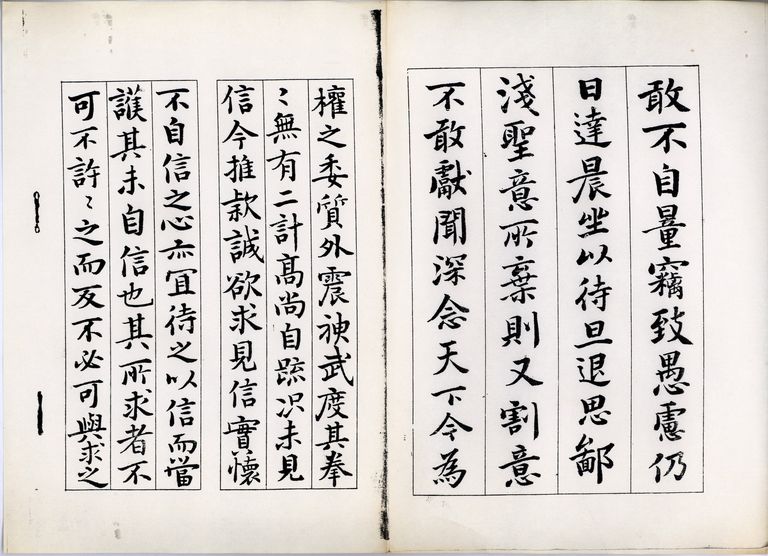 敢不自量竊致愚慮仍
日達晨坐以待旦退思鄙
淺聖意所棄則又割意
不敢獻聞深念天下今為
權之委質外震神武度其拳
〻無有二計高尚自疏況未見
信今推款誠欲求見信實懷
不自信之心亦宜待之以信而當
護其未自信也其所求者不
可不許〻之而反不必可與求之